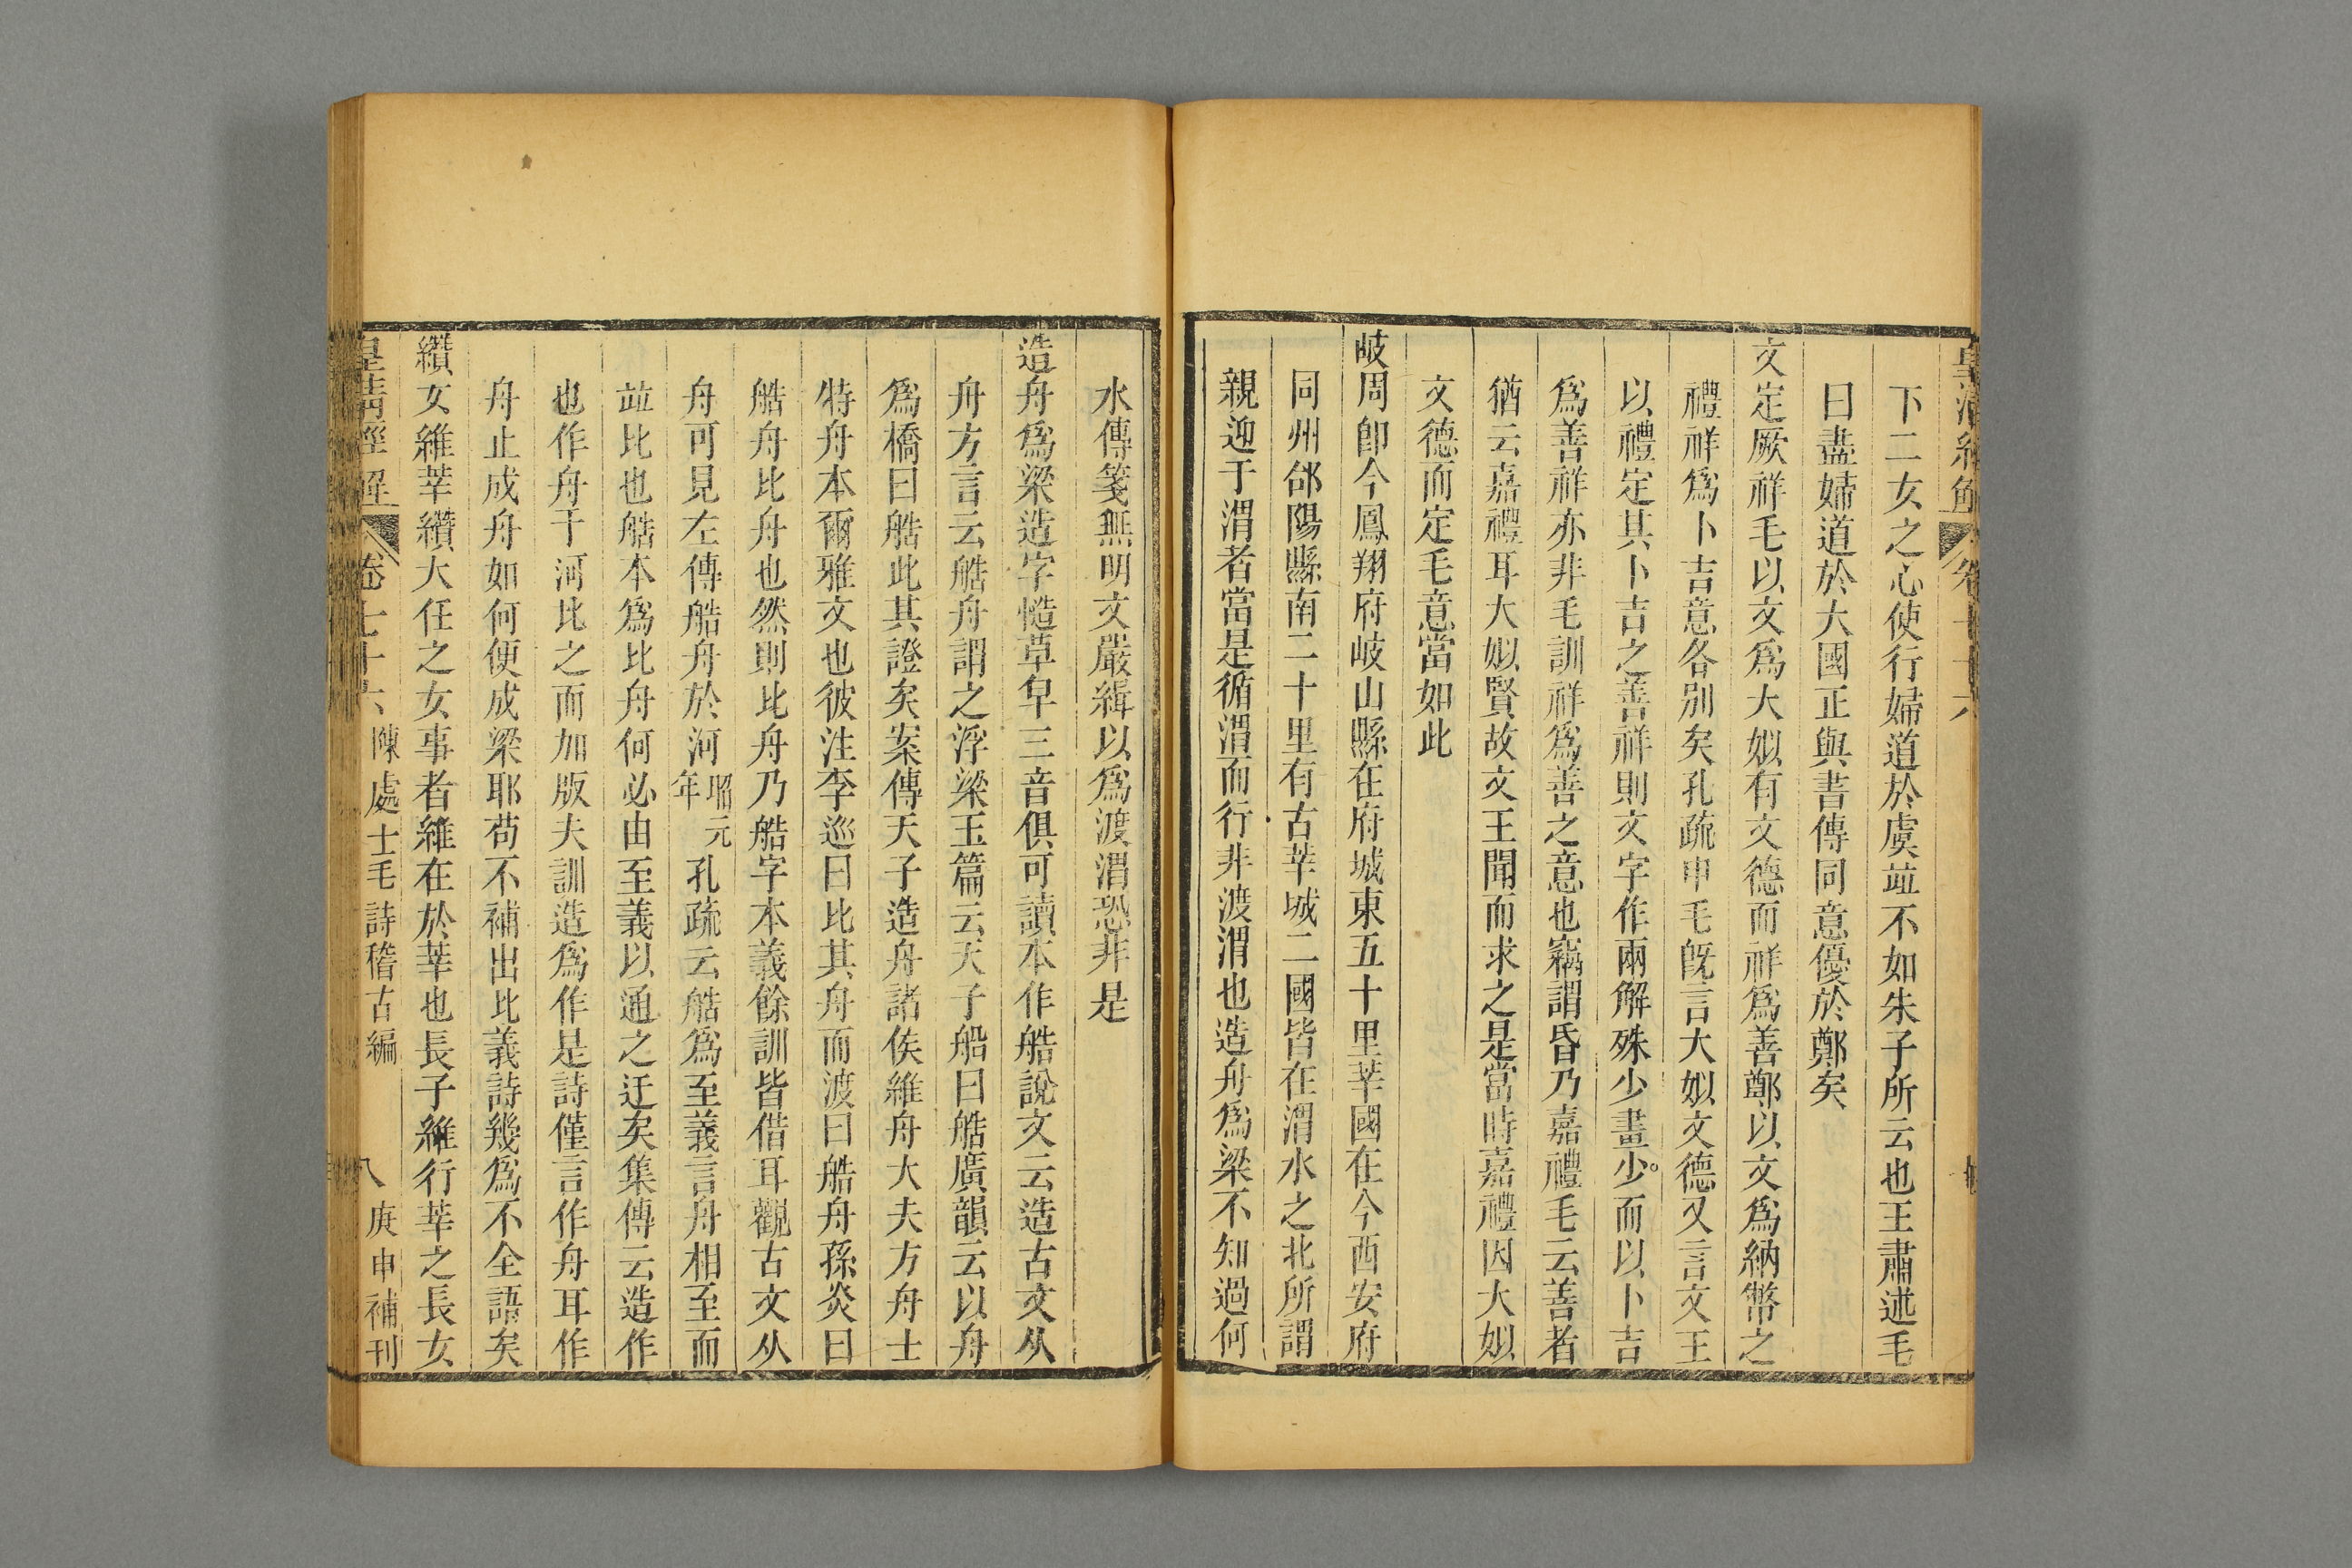 下二女之心使行婦道於虞竝不如朱子所云也王肅述毛
曰盡婦道於大國正與書傳同意優於鄭矣
文定厥祥毛以文爲大姒有文德而祥爲善鄭以文爲納幣之
禮祥爲卜吉意各別矣孔疏申毛旣言大姒文德又言文王
以禮定其卜吉之善祥則文字作兩解殊少畫少而以卜吉
爲善祥亦非毛訓祥爲善之意也竊謂昏乃嘉禮毛云善者
猶云嘉禮耳大姒賢故文王聞而求之是當時嘉禮因大姒
文德而定毛意當如此
岐周卽今鳳翔府岐山縣在府城東五十里莘國在今西安府
同州郃陽縣南二十里有古莘城二國皆在渭水之北所謂
親迎于渭者當是循渭而行非渡渭也造舟爲梁不知過何
水傳箋無明文嚴緝以爲渡渭恐非是
造舟爲梁造字慥草皁三音俱可讀本作艁說文云造古文从
舟方言云艁舟謂之浮梁玉篇云天子船曰艁廣韻云以舟
爲橋曰艁此其證矣案傳天子造舟諸侯維舟大夫方舟士
特舟本爾雅文也彼注李巡曰比其舟而渡曰艁舟孫炎曰
艁舟比舟也然則比舟乃艁字本義餘訓皆借耳觀古文从
舟可見左傳艁舟於河昭元年孔疏云艁爲至義言舟相至而
竝比也艁本爲比舟何必由至義以通之迂矣集傳云造作
也作舟于河比之而加版夫訓造爲作是詩僅言作舟耳作
舟止成舟如何便成梁耶苟不補出比義詩幾爲不全語矣
纘女維莘纘大任之女事者維在於莘也長子維行莘之長女
皇淸經解 卷七十六 陳處士毛詩稽古編 八 庚申補刊